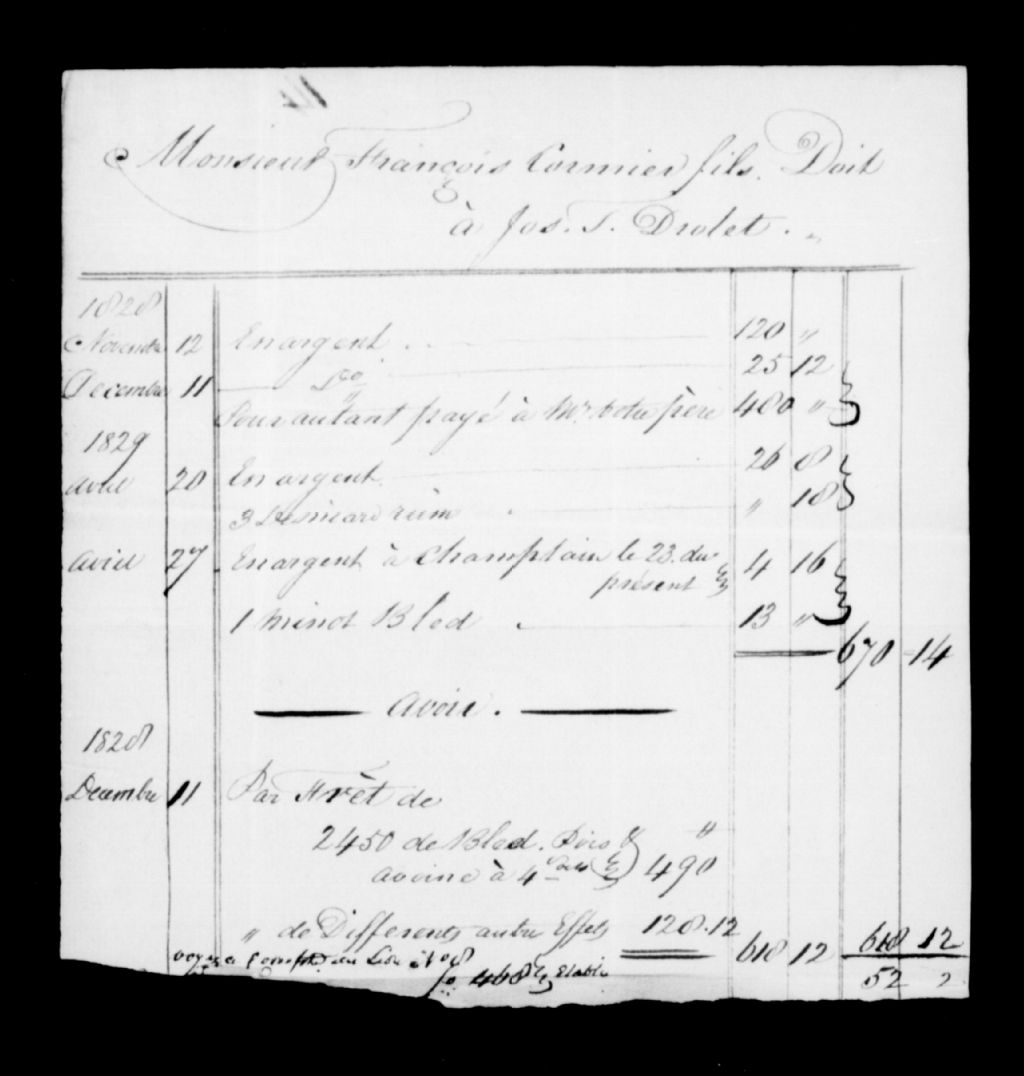 14
Monsieur François Cormier fils. Doit
à Jos. T. Drolet.
1828
Novembre 12 En argent 120 "
Decembre 11 Do 25 12
Pour autant payé à Mr. votre père 480 "
1829
avril 20 En argent 26 8
3 rum " 18
avril 27 En argent à Champlain le 23. du 4 16
présent
1 minot Bled 13 "
670 14
avoir.
1828
Decembre 11 Par Frèt de
2450 de Bled. Pois &
avoine à 4 490 "
" de Differents autre Effets 128.12 618 12 618 12
52 2
fo 468 Etablie